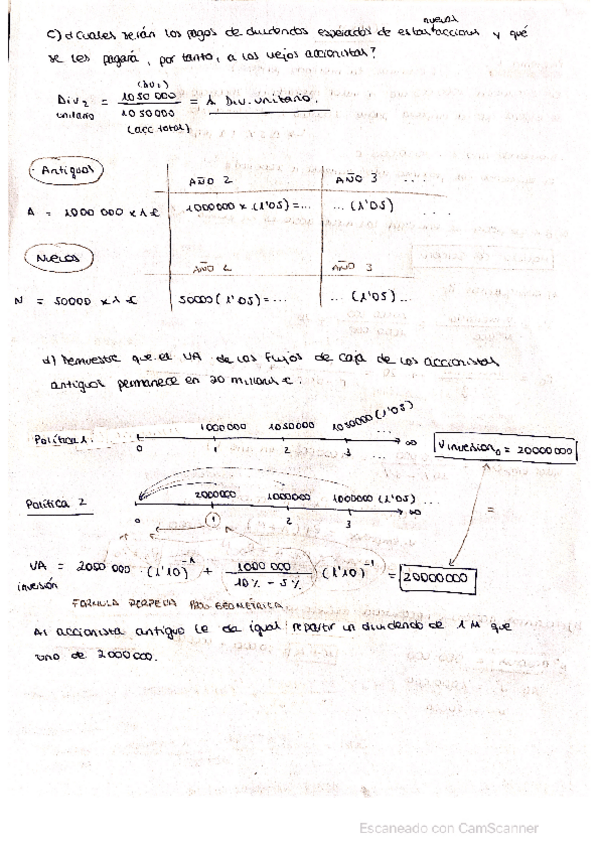 nuevas
c) ¿Cuales serán los pagos de dividendos esperados de estas acciones y qué
se les pagará, por tanto, a los viejos accionistas?
(Div1)
Div2 = 1050 000 / 1050000 = 1 Div. unitario.
unitario
(acc total)
Antiguas
AÑO 2 AÑO 3 ....
A = 1000 000 x 1 € 1000000 x (1'05) = ... ... (1'05) ...
Nuevas
AÑO 2 AÑO 3
N = 50000 x 1 € 50000 (1'05) = ... ... (1'05) ...
d) Demuestre que el VA de los flujos de caja de los accionistas
antiguos permanece en 20 millones €.
1000000 1050000 1050000 (1'05) ...
Política 1. 0 1 2 3 ∞ V inversión0 = 20000000
2000000 1000000 1000000 (1'05) ...
Política 2 0 1 2 3 ∞ =
VA = 2000 000 · (1'10)^-1 + 1000 000 / 10% - 5% (1'10)^-1 = 20000000
inversión
FORMULA PERPETUA PRO. GEOMETRICA.
Al accionista antiguo le da igual repartir un dividendo de 1M que
uno de 2000000.
Escaneado con CamScanner